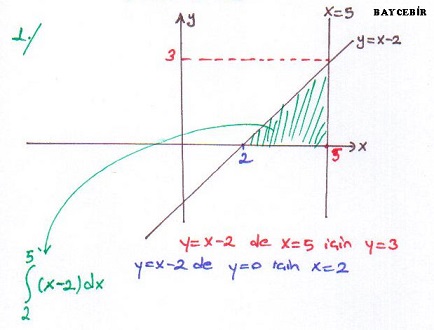 1./
y
x=5
BAYCEBİR
y=x-2
3
2
5
x
y=x-2 de x=5 için y=3
y=x-2 de y=0 için x=2
5
∫(x-2)dx
2